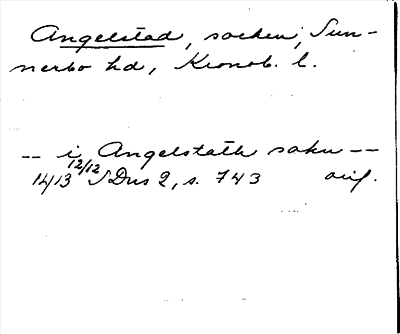 Angelstad, socken, Sun-
nerbo hd, Kronob. l.
-- i Angelstath sokn --
14/13 12/12 SDns 2, s. 743 orig.